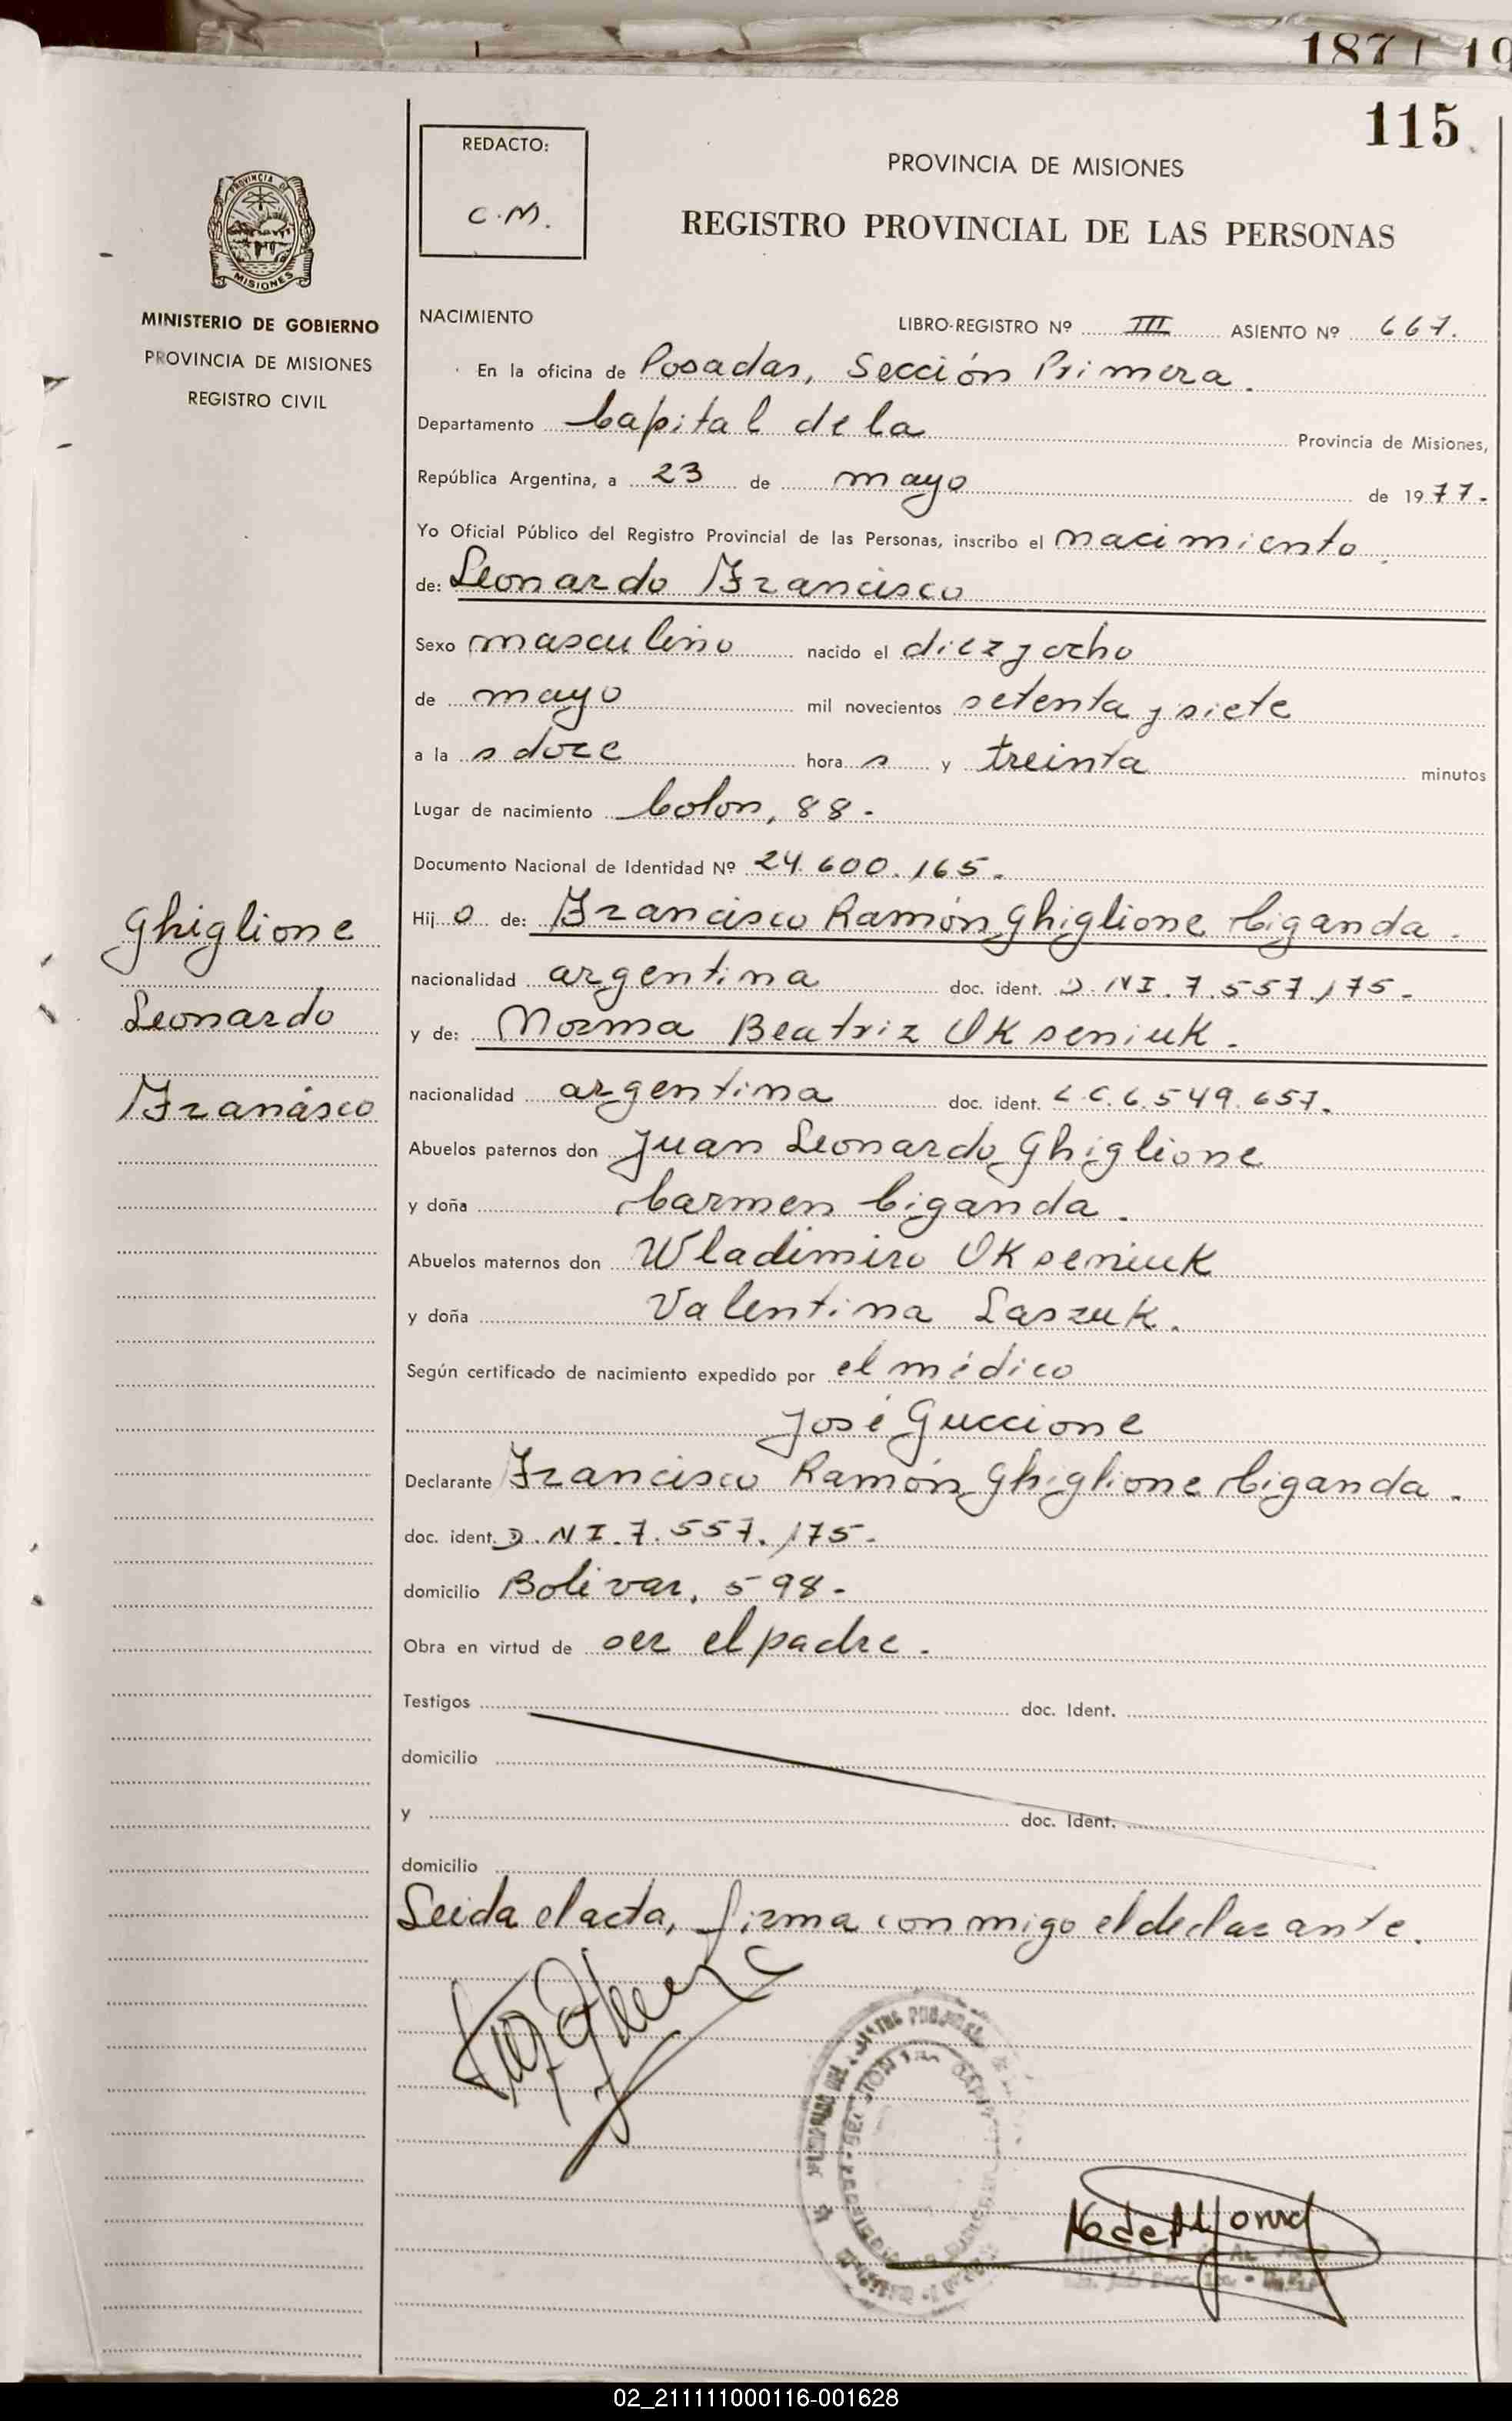 187 19
115
REDACTO:
C.M.
PROVINCIA DE MISIONES
REGISTRO PROVINCIAL DE LAS PERSONAS
PROVINCIA DE MISIONES
MINISTERIO DE GOBIERNO
PROVINCIA DE MISIONES
REGISTRO CIVIL
Ghiglione
Leonardo
Francisco
NACIMIENTO LIBRO-REGISTRO Nº III ASIENTO Nº 667.
En la oficina de Posadas, Sección Primera.
Departamento Capital de la Provincia de Misiones,
República Argentina, a 23 de mayo de 1977.-
Yo Oficial Público del Registro Provincial de las Personas, inscribo el nacimiento
de: Leonardo Francisco
Sexo masculino nacido el diez y ocho
de mayo mil novecientos setenta y siete
a la s doce hora s y treinta minutos
Lugar de nacimiento Colon, 88.-
Documento Nacional de Identidad Nº 24.600.165.
Hij o de: Francisco Ramón Ghiglione Ciganda.
nacionalidad argentina doc. ident. D.NI.7.557.175.
y de: Norma Beatriz Okseniuk.
nacionalidad argentina doc. ident. L C.6.549.657.
Abuelos paternos don Juan Leonardo Ghiglione
y doña Carmen Ciganda.
Abuelos maternos don Wladimiro Okseniuk
y doña Valentina Laszuk.
Según certificado de nacimiento expedido por el médico
José Guccione
Declarante Francisco Ramón Ghiglione Ciganda.
doc. ident. D.NI.7.557.175.
domicilio Bolivar, 598.-
Obra en virtud de ser el padre.
Testigos doc. Ident.
domicilio
y doc. Ident.
domicilio
Leida el acta, firma conmigo el declarante.
02_211111000116-001628